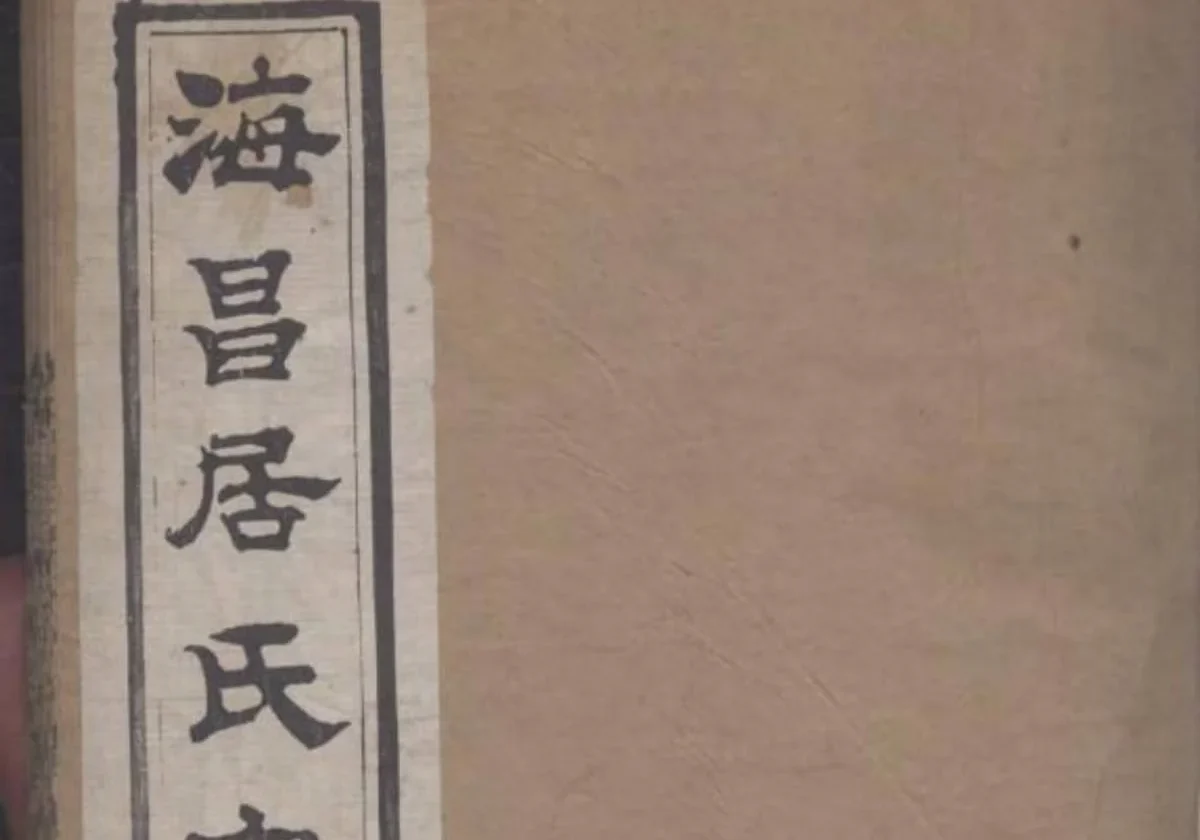 海昌居氏